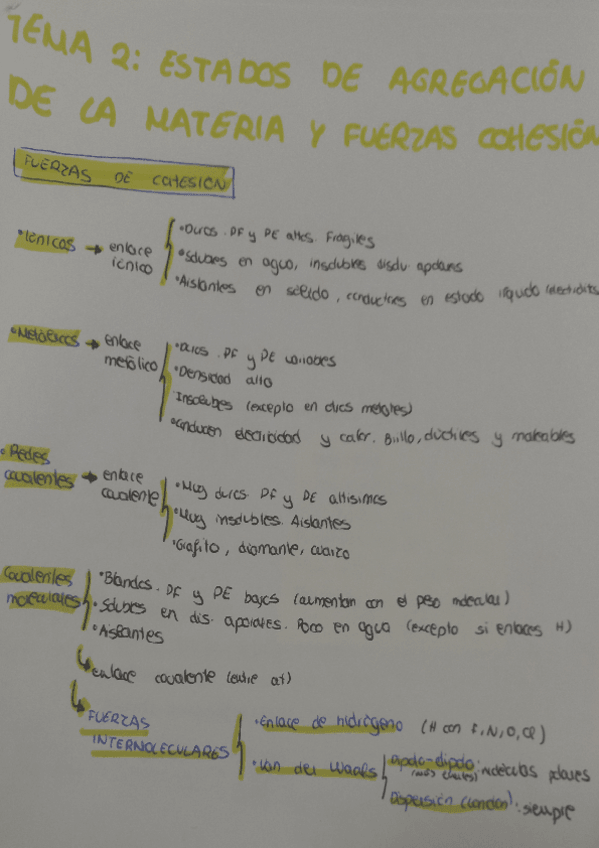 TEMA 2: ESTADOS DE AGREGACIÓN
DE LA MATERIA Y FUERZAS COHESIÓN
FUERZAS DE COHESIÓN
•Iónicos → enlace iónico
•Duros. PF y PE altos. Frágiles
•Solubles en agua, insolubles disolv. apolares
•Aislantes en sólido, conductores en estado líquido
•Metálicos → enlace metálico
•Duros. PF y PE variables
•Densidad alta
Insolubles (excepto en otros metales)
•Conducen electricidad y calor. Brillo, dúctiles y maleables
•Redes covalentes → enlace covalente
•Muy duros. PF y PE altísimos
•Muy insolubles. Aislantes
•Grafito, diamante, cuarzo
Covalentes moleculares
•Blandos. PF y PE bajos (aumentan con el peso molecular)
•Solubles en dis. apolares. Poco en agua (excepto si enlaces H)
•Aislantes
↳ enlace covalente (entre at)
↳ FUERZAS INTERMOLECULARES
•Enlace de hidrógeno (H con F, N, O, Cl)
•Van der Waals
dipolo-dipolo: moléculas polares
(más fuertes)
Dispersión (London): siempre